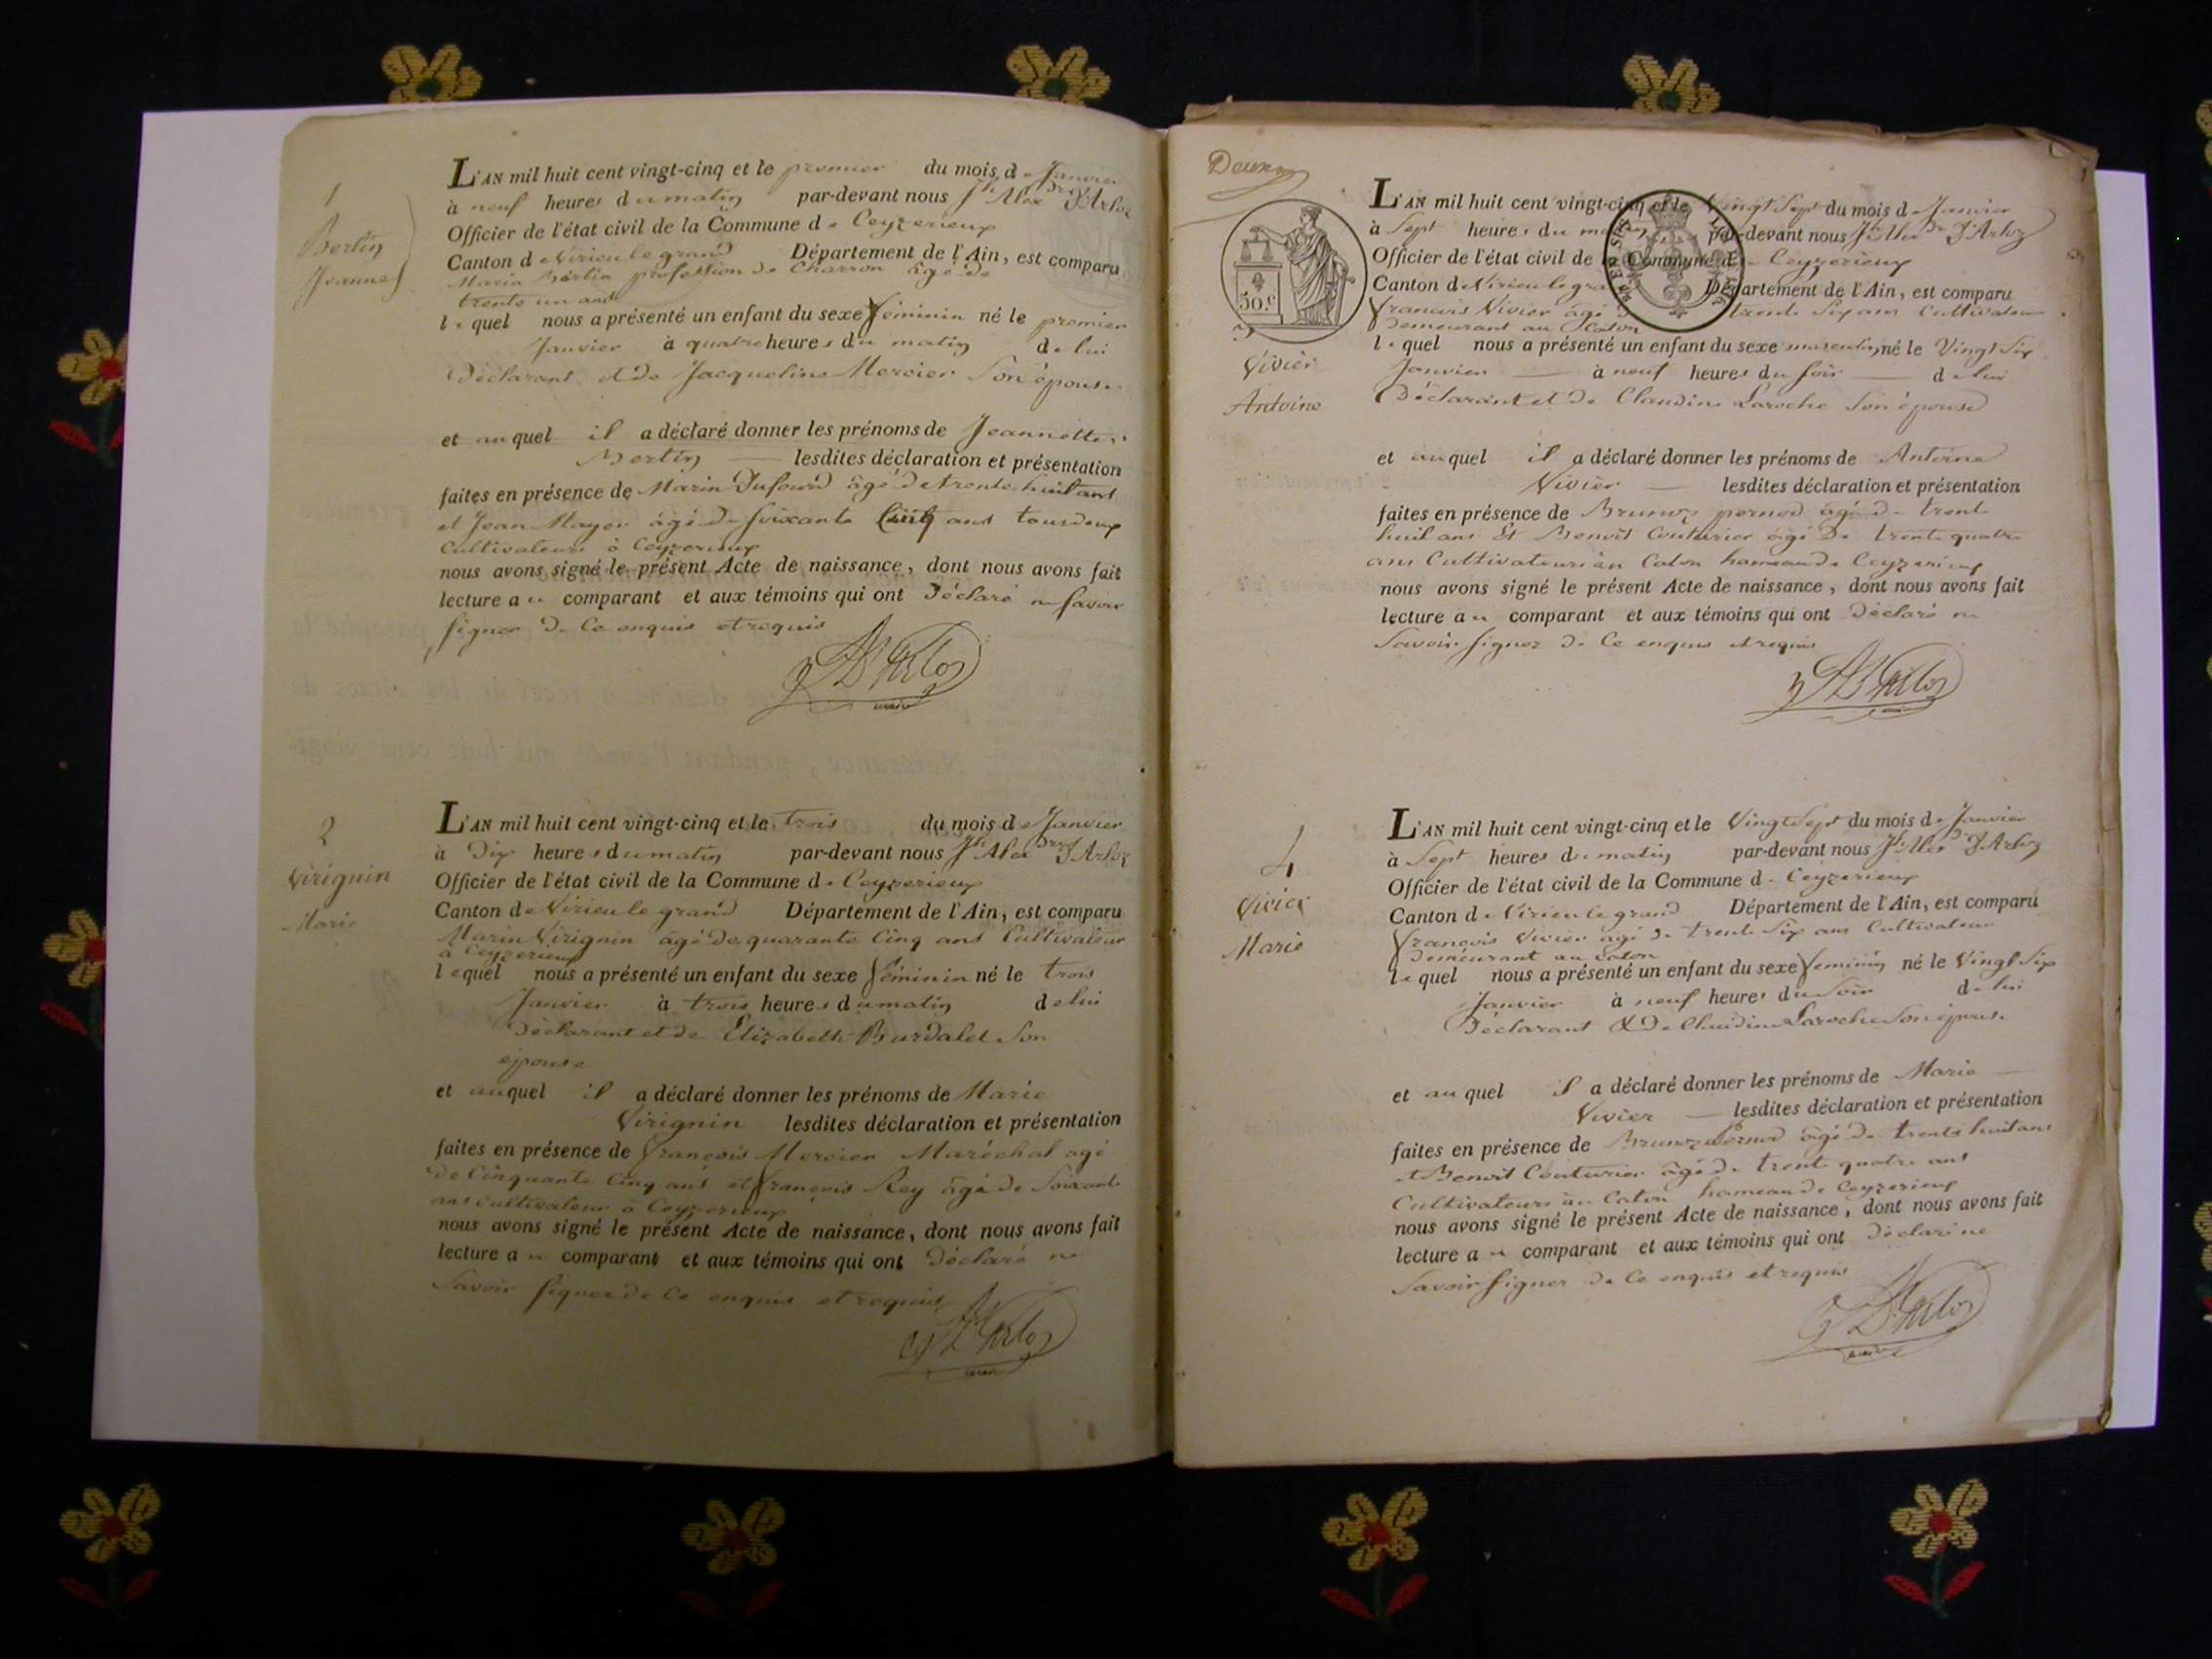 1
Bertin
Jeanne
L'AN mil huit cent vingt-cinq et le premier du mois de Janvier
à neuf heures du matin par-devant nous Jh Alexdre D'Arloz
Officier de l'état civil de la Commune de Ceyzerieux
Canton de Virieu le grand Département de l'Ain, est comparu
Marin Bertin profession de Charron âgé de
trente un ans
lequel nous a présenté un enfant du sexe féminin né le premier
Janvier à quatre heures du matin de lui
Déclarant et de Jacqueline Mercier Son épouse
et auquel il a déclaré donner les prénoms de Jeannette
Bertin lesdites déclaration et présentation
faites en présence de Marin Dufourd âgé de trente huit ans
et Jean Mayer âgé de soixante Cinq ans tous deux
Cultivateurs à Ceyzerieux
nous avons signé le présent Acte de naissance, dont nous avons fait
lecture au comparant et aux témoins qui ont Déclaré ne savoir
signer de ce enquis et requis
JAD'Arloz
maire
2
Virignin
Marie
L'AN mil huit cent vingt-cinq et le trois du mois de Janvier
à Dix heures du matin par-devant nous Jh Alexdre D'Arloz
Officier de l'état civil de la Commune de Ceyzerieux
Canton de Virieu le grand Département de l'Ain, est comparu
Marin Virignin âgé de quarante Cinq ans Cultivateur
à Ceyzerieux
lequel nous a présenté un enfant du sexe féminin né le trois
Janvier à trois heures du matin de lui
Déclarant et de Elizabeth Burdalet Son
épouse
et auquel il a déclaré donner les prénoms de Marie
Virignin lesdites déclaration et présentation
faites en présence de françois Mercier Maréchal agé
de Cinquante Cinq ans et françois Rey âgé de Soixante
ans cultivateur à Ceyzerieux
nous avons signé le présent Acte de naissance, dont nous avons fait
lecture au comparant et aux témoins qui ont Déclaré ne
Savoir signer de ce enquis et requis
JAD'Arloz
maire
Deux
50.c
3
Vivier
Antoine
L'AN mil huit cent vingt-cinq et le Vingt Sept du mois de Janvier
à Sept heures du matin par-devant nous Jh Alexdre D'Arloz
Officier de l'état civil de la Commune de Ceyzerieux
Canton de Virieu le grand Département de l'Ain, est comparu
françois Vivier âgé de trente Six ans Cultivateur
Demeurant au Caton
lequel nous a présenté un enfant du sexe masculin né le Vingt Six
Janvier à neuf heures du Soir de lui
Déclarant et de Claudine Laroche Son épouse
et auquel il a déclaré donner les prénoms de Antoine
Vivier lesdites déclaration et présentation
faites en présence de Brunoz pernod âgé de trente
huit ans Et Benoit Couturier âgé de trente quatre
ans Cultivateurs au Caton hameau de Ceyzerieux
nous avons signé le présent Acte de naissance, dont nous avons fait
lecture au comparant et aux témoins qui ont Déclaré ne
Savoir signer de ce enquis et requis
JAD'Arloz
maire
4
Vivier
Marie
L'AN mil huit cent vingt-cinq et le Vingt Sept du mois de Janvier
à Sept heures du matin par-devant nous Jh Alexdre D'Arloz
Officier de l'état civil de la Commune de Ceyzerieux
Canton de Virieu le grand Département de l'Ain, est comparu
françois Vivier âgé de trente Six ans Cultivateur
Demeurant au Caton
lequel nous a présenté un enfant du sexe feminin né le Vingt Six
Janvier à neuf heures du Soir de lui
Déclarant & de Claudine Laroche Son épouse
et auquel il a déclaré donner les prénoms de Marie
Vivier lesdites déclaration et présentation
faites en présence de Brunoz Pernod âgé de trente huit ans
et Benoit Couturier âgé de trente quatre ans
Cultivateurs au Caton hameau de Ceyzerieux
nous avons signé le présent Acte de naissance, dont nous avons fait
lecture au comparant et aux témoins qui ont Déclaré ne
Savoir Signer de ce enquis et requis
JAD'Arloz
maire